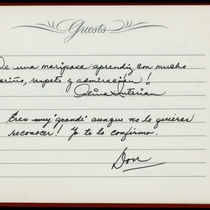 Guests
De una mariposa aprendiz con mucho
cariño, respeto y admiración!
Eres muy "grande" aunque no lo quieras
reconocer! Yo te lo confirmo.
Don